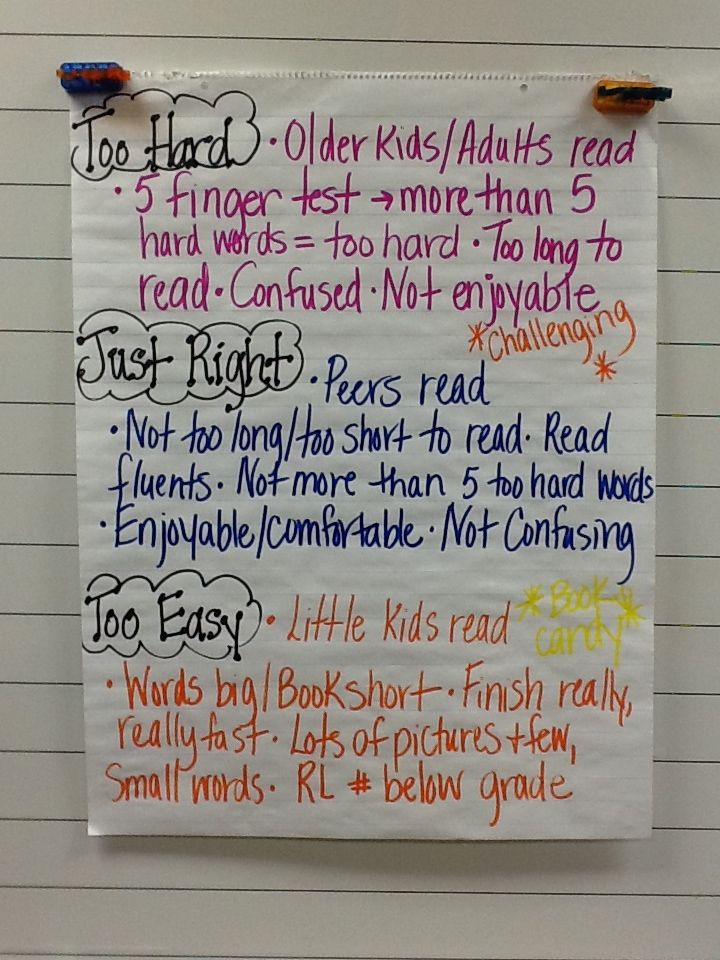 Too Hard • Older Kids/Adults read
• 5 finger test → more than 5
hard words = too hard • Too long to
read • Confused • Not enjoyable
*Challenging*
Just Right • Peers read
• Not too long/too short to read • Read
fluents • Not more than 5 too hard words
• Enjoyable/comfortable • Not Confusing
Too Easy • Little Kids read *Book candy*
• Words big/Book short • Finish really,
really fast • Lots of pictures + few,
Small words • RL # below grade